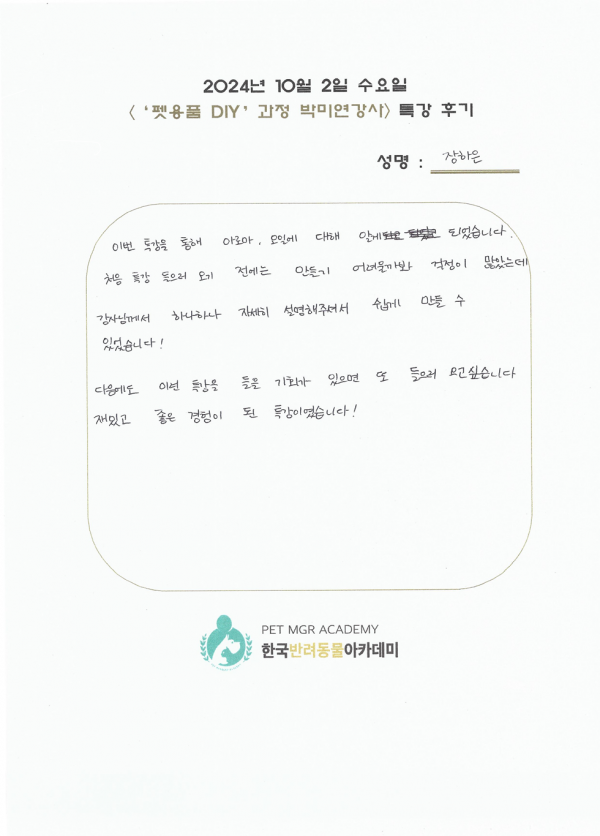 2024년 10월 2일 수요일
〈 '펫용품 DIY' 과정 박미연강사〉 특강 후기
성명 : 장하은
이번 특강을 통해 아로마, 오일에 대해 알게 되었습니다.
처음 특강 들으러 오기 전에는 만들기 어려울까봐 걱정이 많았는데
강사님께서 하나하나 자세히 설명해주셔서 쉽게 만들 수
있었습니다!
다음에도 이런 특강을 들을 기회가 있으면 또 들으러 오고싶습니다
재밌고 좋은 경험이 된 특강이였습니다!
PET MGR ACADEMY
한국반려동물아카데미